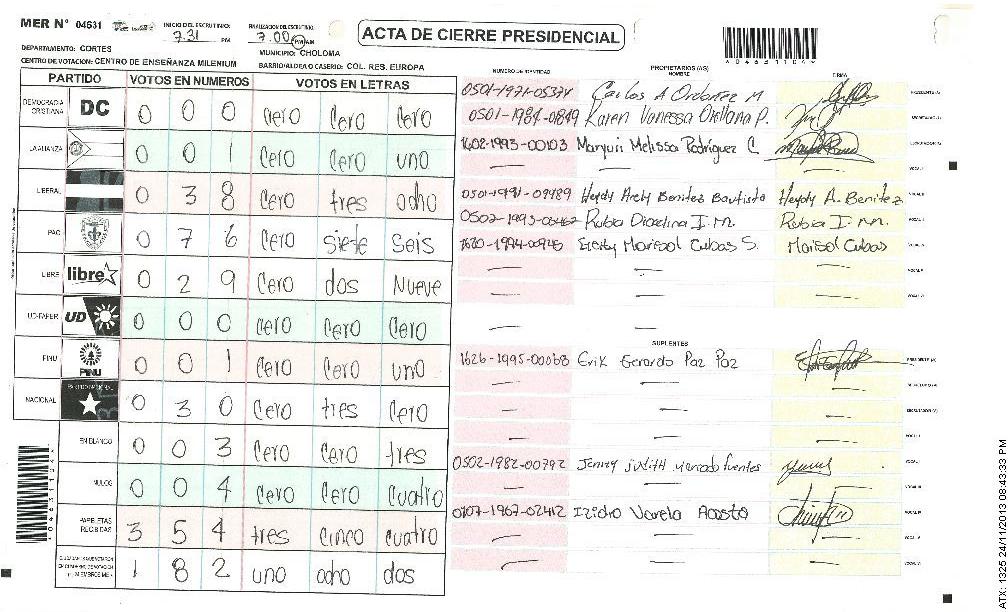 MER N° 04631
INICIO DEL ESCRUTINIO:
7.31 PM
FINALIZACION DEL ESCRUTINIO:
7.00 PM AM
ACTA DE CIERRE PRESIDENCIAL
DEPARTAMENTO: CORTES
MUNICIPIO: CHOLOMA
CENTRO DE VOTACION: CENTRO DE ENSEÑANZA MILENIUM
BARRIO/ALDEA O CASERIO: COL. RES. EUROPA
PARTIDO VOTOS EN NUMEROS VOTOS EN LETRAS
DEMOCRACIA CRISTIANA DC 0 0 0 Cero Cero Cero
LA ALIANZA 0 0 1 Cero Cero uno
LIBERAL 0 3 8 Cero tres ocho
PAC 0 7 6 Cero siete Seis
LIBRE libre 0 2 9 Cero dos Nueve
UD-FAPER UD 0 0 0 Cero Cero Cero
PINU PINU 0 0 1 Cero Cero uno
NACIONAL PARTIDO NACIONAL 0 3 0 Cero tres Cero
EN BLANCO 0 0 3 Cero Cero tres
NULOS 0 0 4 Cero Cero cuatro
PAPELETAS RECIBIDAS 3 5 4 tres cinco cuatro
1 8 2 uno ocho dos
NUMERO DE IDENTIDAD PROPIETARIOS (AS) NOMBRE FIRMA
0501-1971-05374 Carlos A Ordoñez M PRESIDENTE (A)
0501-1984-0849 Karen Vanessa Orellana P. SECRETARIO (A)
1602-1993-00103 Maryuri Melissa Rodriguez C. ESCRUTADOR (A)
VOCAL I
0501-1991-09989 Heydy Arely Benitez Bautista Heydy A. Benitez VOCAL II
Rubia Dioselina I.M. Rubia I.M.
Marisol Cubas S. Marisol Cubas
SUPLENTES
1626-1995-00068 Erik Gerardo Paz Paz PRESIDENTE (A)
0502-1982-00792 Jenny Judith Mercado fuentes
0107-1967-02412 Izidro Varela Acosta
ATX: 1325 24/11/2013 08:43:33 PM